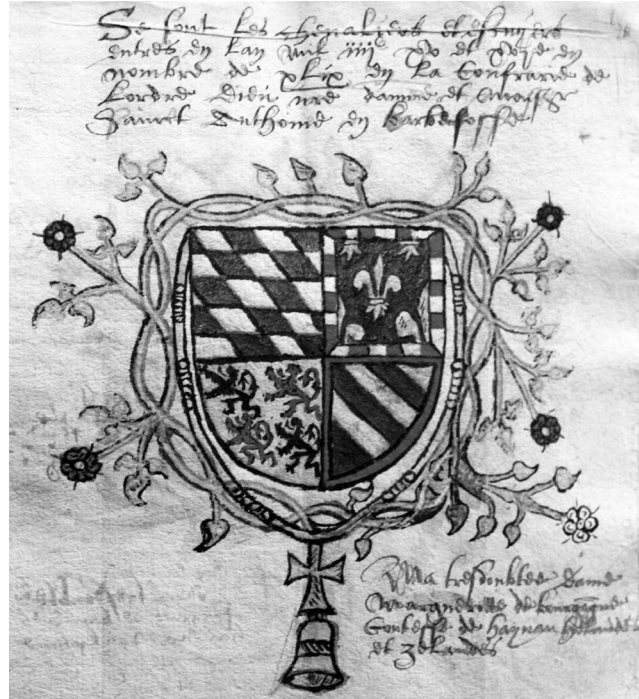 Se sont les chevaliers et escuiers
entres en lan mil iiiic xv et xvje en
nombre de xlix en la Confrarie de
Lordre Dieu nre damme et
Sainct Anthoine en barbefosse
Ma tresdoubtee dame
Marguerite de bourgogne
Contesse de haynau hollande
et zelandes